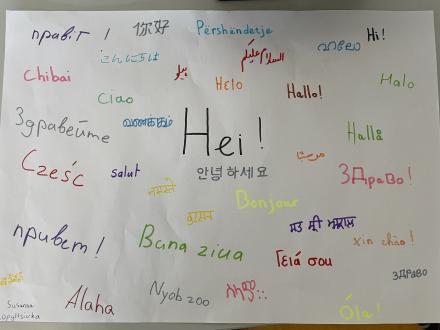 привіт!
你好
Përshëndetje
Hi!
こんにちは
السلام عليكم
ഹലോ
Chibai
Helo
Hallo!
Halo
Ciao
Здравейте
வணக்கம்
Hei!
Hallå
مرحبا
Cześć
salut
안녕하세요
Здраво!
नमस्ते
Bonjour
привет!
Buna ziua
Γειά σου
xin chào!
здраво
Alaha
Nyob zoo
ሰላም
Óla!
Susanna